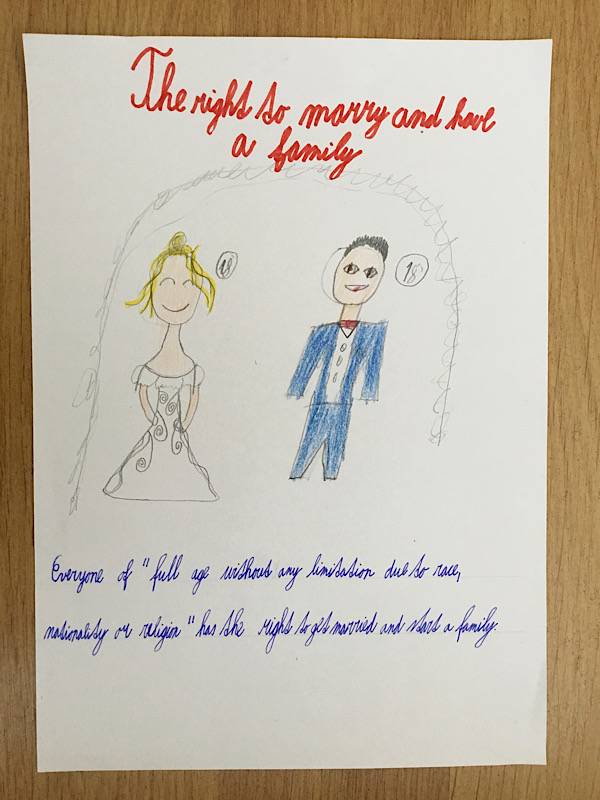 The right to marry and have
a family
18
18
Everyone of "full age without any limitation due to race,
nationality or religion" has the right to get married and start a family.